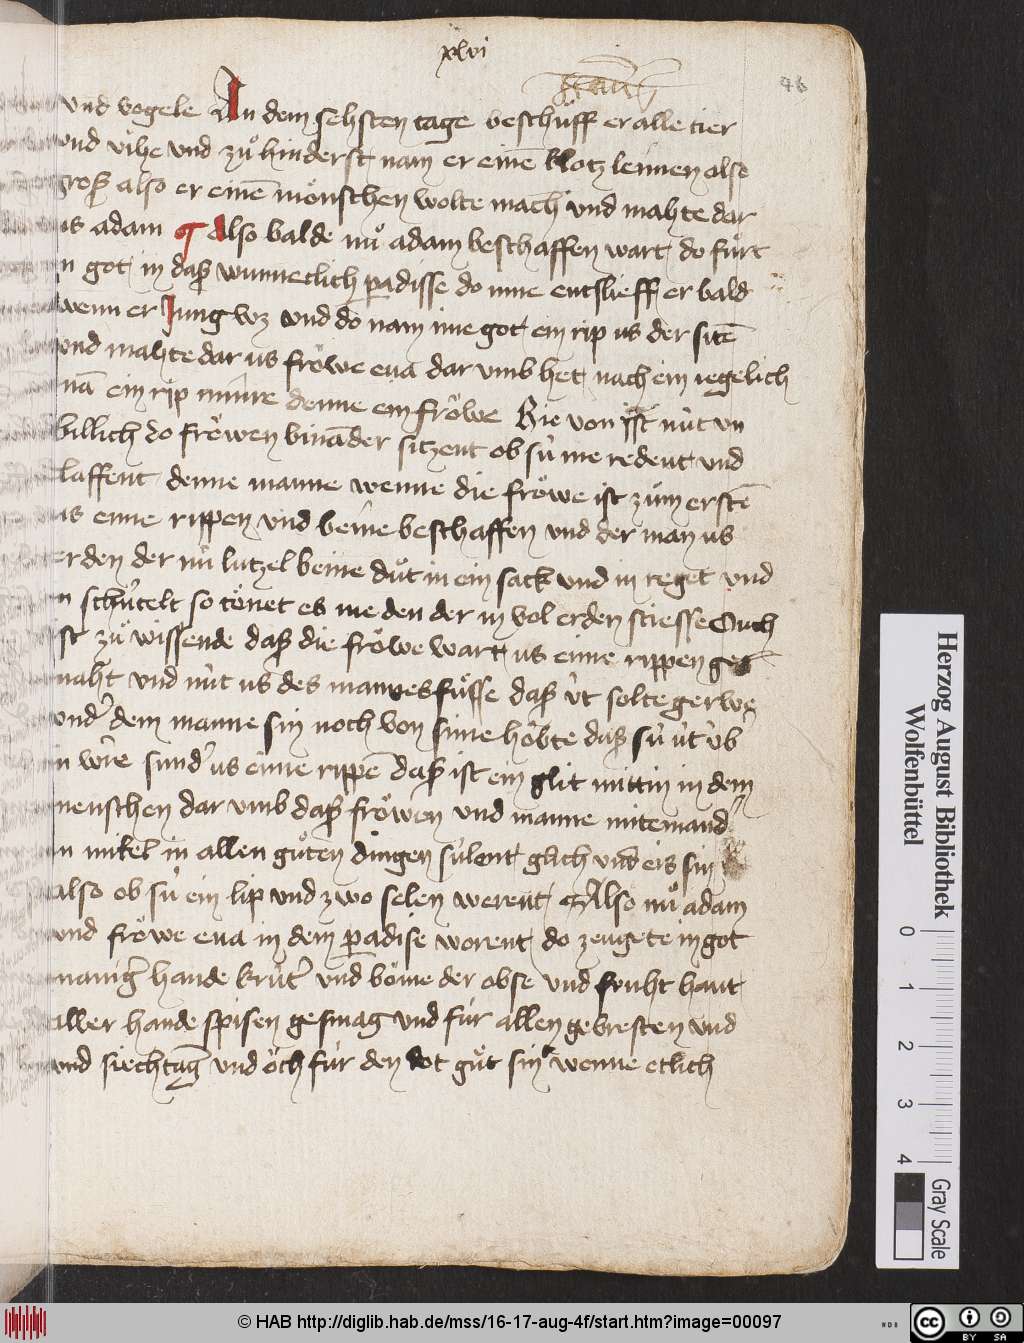 xlvi
46
vnd vogele An dem sehsten tage beschůff er alle tier
vnd vihe vnd zů hinderst nam er einē klotz leimen also
groß also er einē mönschen wolte mach vnd mahte dar
us adam Also balde nů adam beschaffen wart do fůrt
in got in daß wunneclich padisse do inne entslieff er bald
wenn er Jung wz vnd do nam ime got ein rip us der sitē
vnd mahte dar us fröwe eua dar vmb het nach ein iegelich
mā ein rip minre denne ein fröwe Hie von ist nüt vn
billich so fröwen bināder sitzent ob sü me redent vnd
klaffent denne manne wenne die fröwe ist zům erstē
us eime rippen vnd beine beschaffen vnd der man us
erden der nů lutzel beine důt in ein sack vnd in reget vnd
in schütelt so tönet es me den der in vol erden stiesse Ouch
ist zů wissende daß die fröwe wart us eime rippen ge
maht vnd nüt us des mannes füsse daß üt solte gerwe
vnder dem manne sin noch von sime höbte daß sü üt üb
in were sunder us eime rippē daß ist ein glit mittin in dem
menschen dar vmb daß fröwen vnd manne mitenand
in mitel in allen gůten dingen sülent glich vnd eis sin
also ob sü ein lip vnd zwo selen werent Also nů adam
vnd fröwe eua in dem padise worent do zeugete in got
maniger hande krüter vnd böme der obse vnd fruht hant
aller hande spisen gesmag vnd für allen gebresten vnd
vnd siechtag vnd öch für den dot gůt sin wenne etlich
Herzog August Bibliothek
Wolfenbüttel
0 1 2 3 4
Gray Scale
© HAB http://diglib.hab.de/mss/16-17-aug-4f/start.htm?image=00097
WDB
cc BY SA